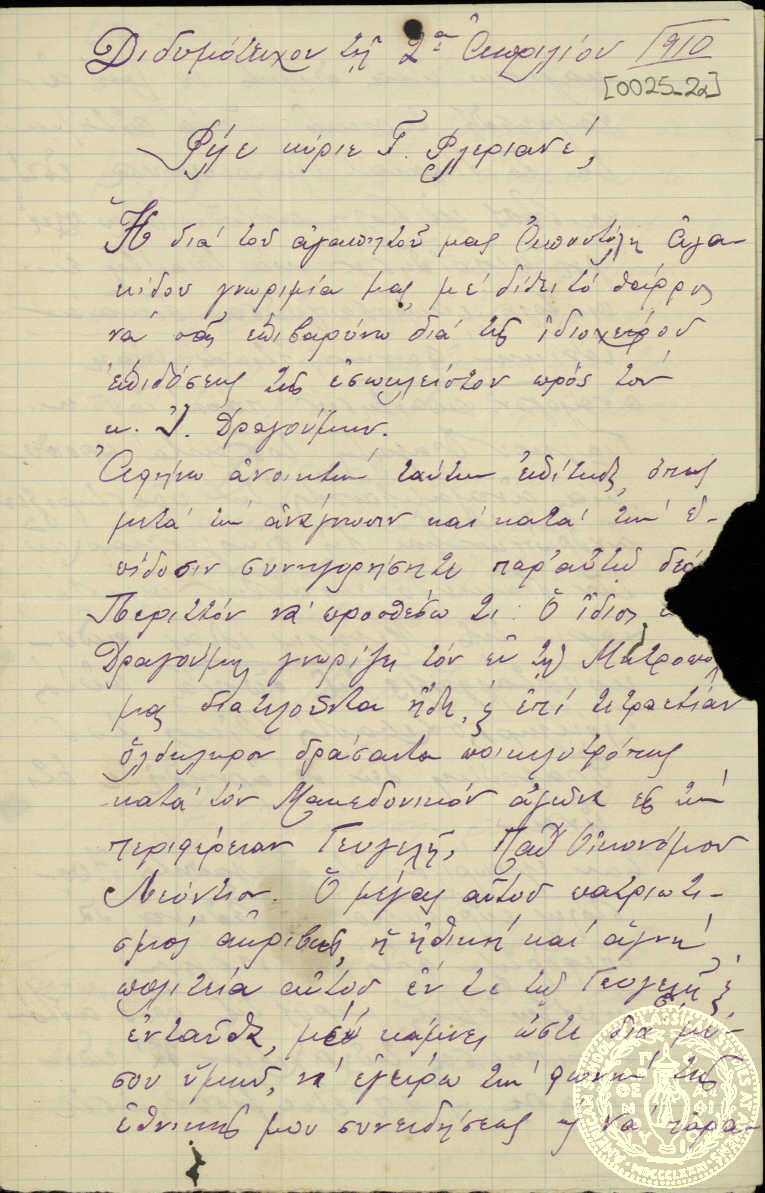 Διδυμότειχον τῇ 2ᾳ Ἀπριλίου 1910
[0025_2α]
Φίλε κύριε Γ. Φλεριανέ,
Ἡ διὰ τοῦ ἀγαπητοῦ μας Ἀποστόλη Ἀλα-
κίδου γνωριμία μας, μὲ δίδει τὸ θάρρος
νὰ σᾶς ἐπιβαρύνω διὰ τῆς ἰδιοχείρου
ἐπιδόσεως τῆς ἐσωκλείστου πρὸς τὸν
κ. Ἰ. Δραγούμην.
Ἀφήνω ἀνοικτὴν ταύτην ἐπίτηδες, ὅπως
μετὰ τὴν ἀνάγνωσιν καὶ κατὰ τὴν ἐ-
πίδοσιν συνηγορήσητε παρ' αὐτῷ
Περιττὸν νὰ προσθέσω τι. Ὁ ἴδιος
Δραγούμης γνωρίζει τὸν ἐν τῇ
μας διατελοῦντα ἤδη, ἐπὶ τετραετίαν
ὁλόκληρον δράσαντα ποικιλοτρόπως
κατὰ τὸν Μακεδονικὸν ἀγῶνα εἰς τὴν
περιφέρειαν Γευγελῆς, Παπᾶ Οἰκονόμον
Λεόντιον. Ὁ μέγας αὐτοῦ πατριωτι-
σμὸς ἀκριβῶς, ἡ ἠθικὴ καὶ ἁγνὴ
πολιτεία αὐτοῦ ἔν τε τῇ Γευγελῇ
ἐνταῦθα, μὲ κάμνει ὥστε διὰ μέ-
σου ὑμῶν, νὰ ἐγείρω τὴν φωνὴν τῆς
ἐθνικῆς μου συνειδήσεως νὰ παρα-